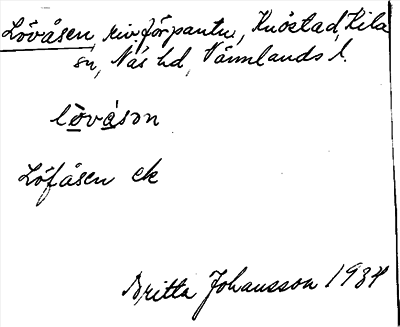 Lövåsen, riv.förpantn., Knöstad, Kila
sn, Näs hd, Värmlands l.
lòváson
Löfåsen ek
Britta Johansson 1934